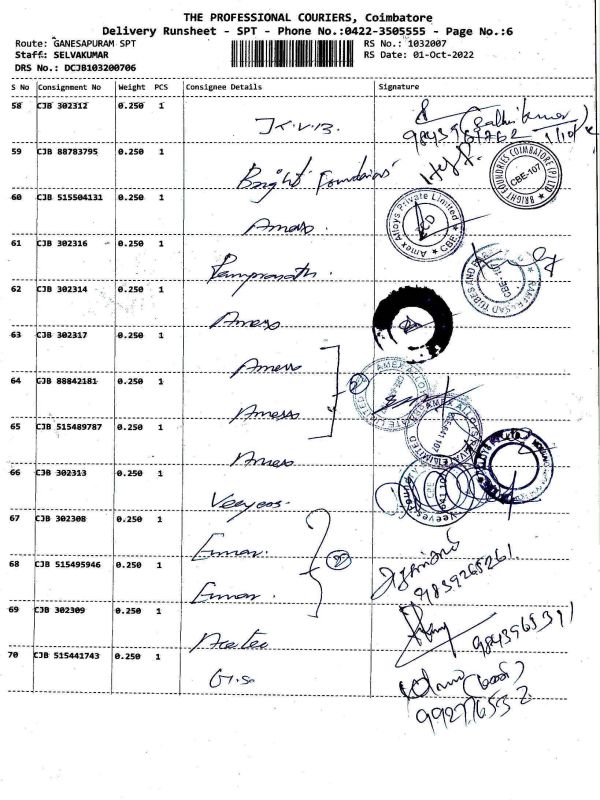 THE PROFESSIONAL COURIERS, Coimbatore
Delivery Runsheet - SPT - Phone No.:0422-3505555 - Page No.:6
Route: GANESAPURAM SPT
Staff: SELVAKUMAR
DRS No.: DCJB103200706
RS No.: 1032007
RS Date: 01-Oct-2022
S No Consignment No Weight PCS Consignee Details Signature
58 CJB 302312 0.250 1
J.K.V.B.
59 CJB 88783795 0.250 1
Bright Founderies
BRIGHT FOUNDRIES COIMBATORE (P) LTD
CBE-107
60 CJB 515504131 0.250 1
Amex
Amex Alloys Private Limited
CBE
61 CJB 302316 0.250 1
Ramprasath
62 CJB 302314 0.250 1
Amexs
63 CJB 302317 0.250 1
Amexs
64 CJB 88842181 0.250 1
Amexs
2
65 CJB 515489787 0.250 1
Amexs
66 CJB 302313 0.250 1
Veeyees
67 CJB 302308 0.250 1
Emmar
68 CJB 515495946 0.250 1
Emmar
2
9839265261
69 CJB 302309 0.250 1
9843965391
70 CJB 515441743 0.250 1